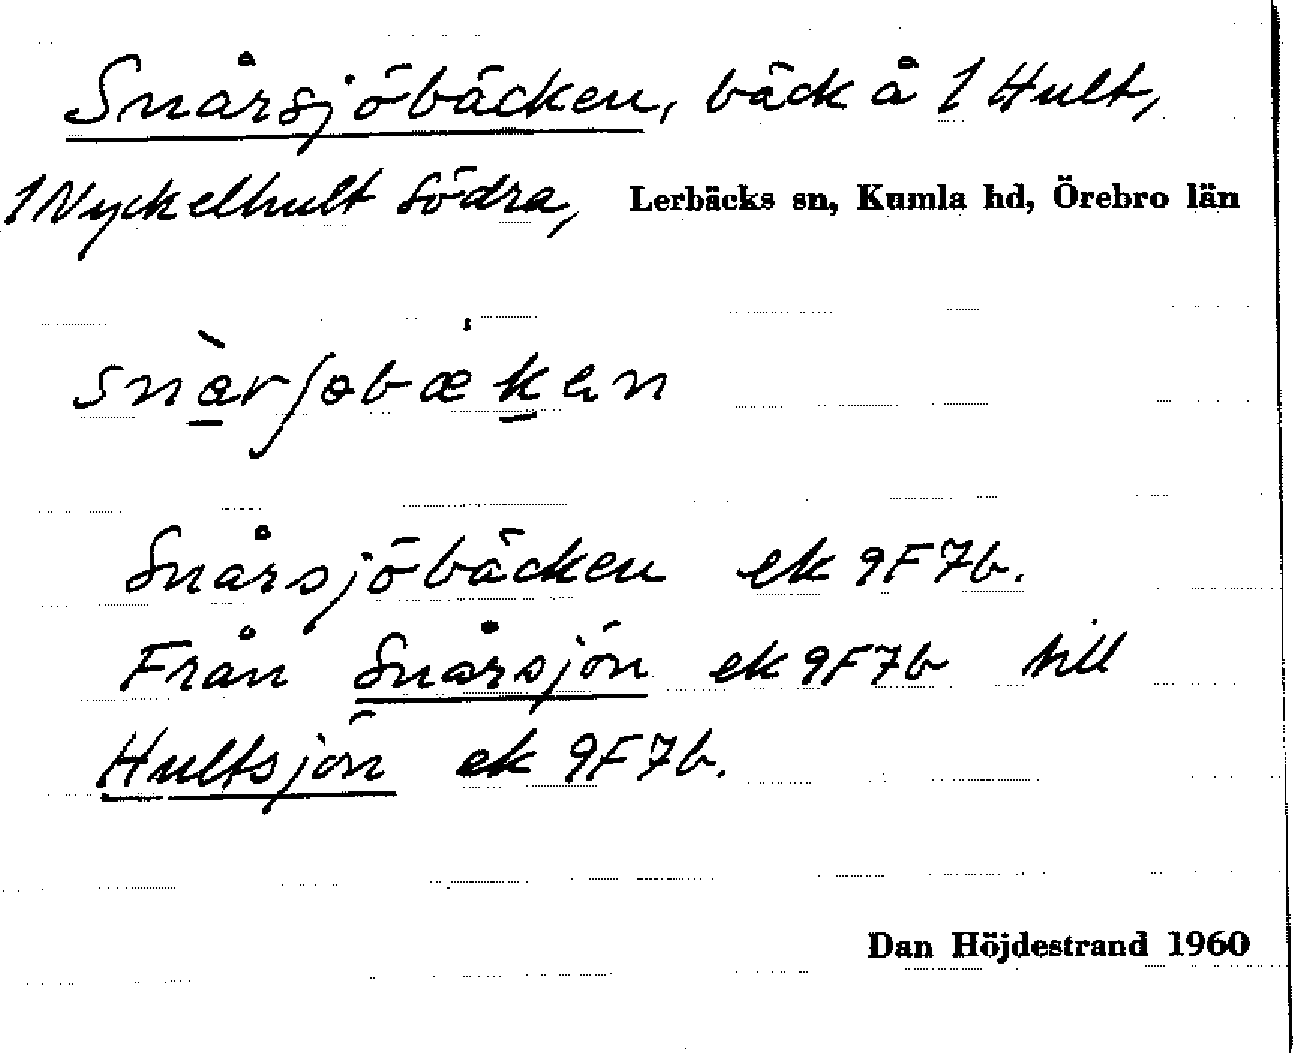 Snårsjöbäcken, bäck å 1 Hult,
1 Nyckelhult Södra, Lerbäcks sn, Kumla hd, Örebro län
Snårsjöbäcken ek 9F7b.
Från Snårsjön ek 9F7b till
Hultsjön ek 9F7b.
Dan Höjdestrand 1960